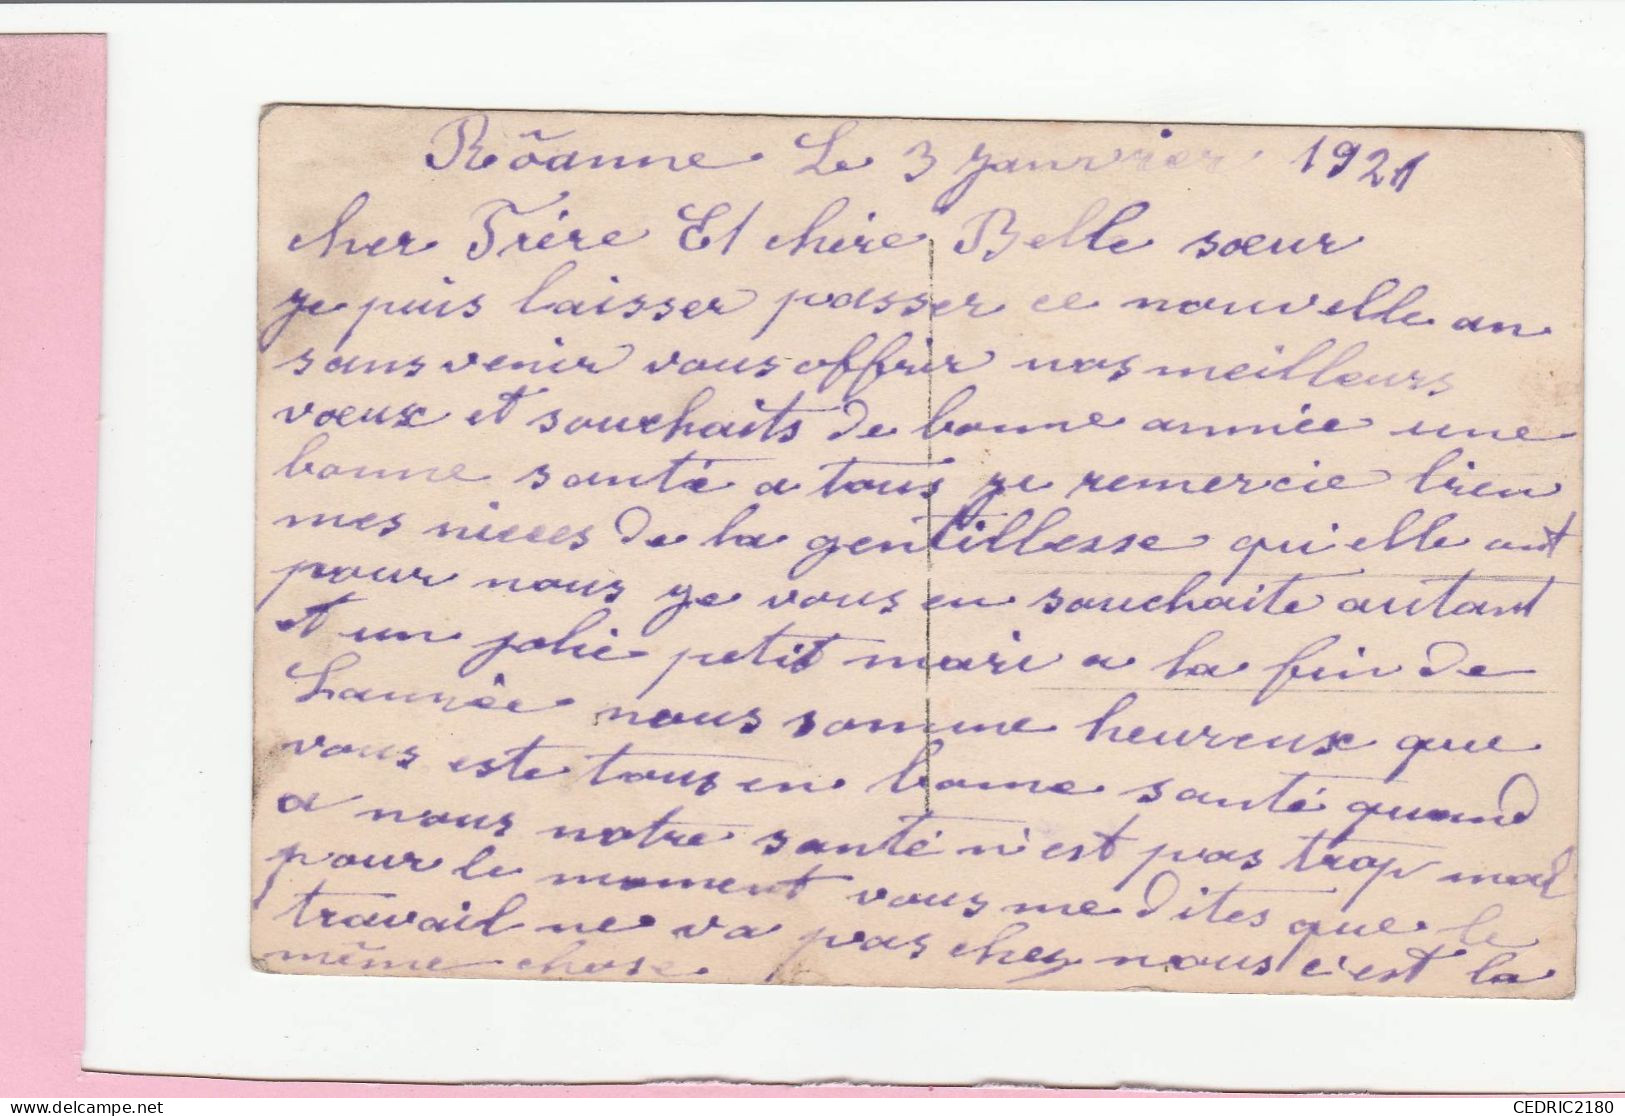 Rõanne Le 3 Janvrier 1921
cher Frère Et chère Belle sœur
je puis laisser passer ce nouvelle an
sans venir vous offrir nos meilleurs
vœux et souchaits de bonne année une
bonne santé a tous je remercie bien
mes nieces de la gentillesse qu'elle ont
pour nous je vous en souchaite autant
et un jolie petit mari a la fin de
Lannèe nous somme heureux que
vous este tous en bonne santé quand
a nous notre santé n'est pas trop mal
pour le moment vous me dites que le
travail ne va pas chez nous c'est la
même chose.
CEDRIC2180